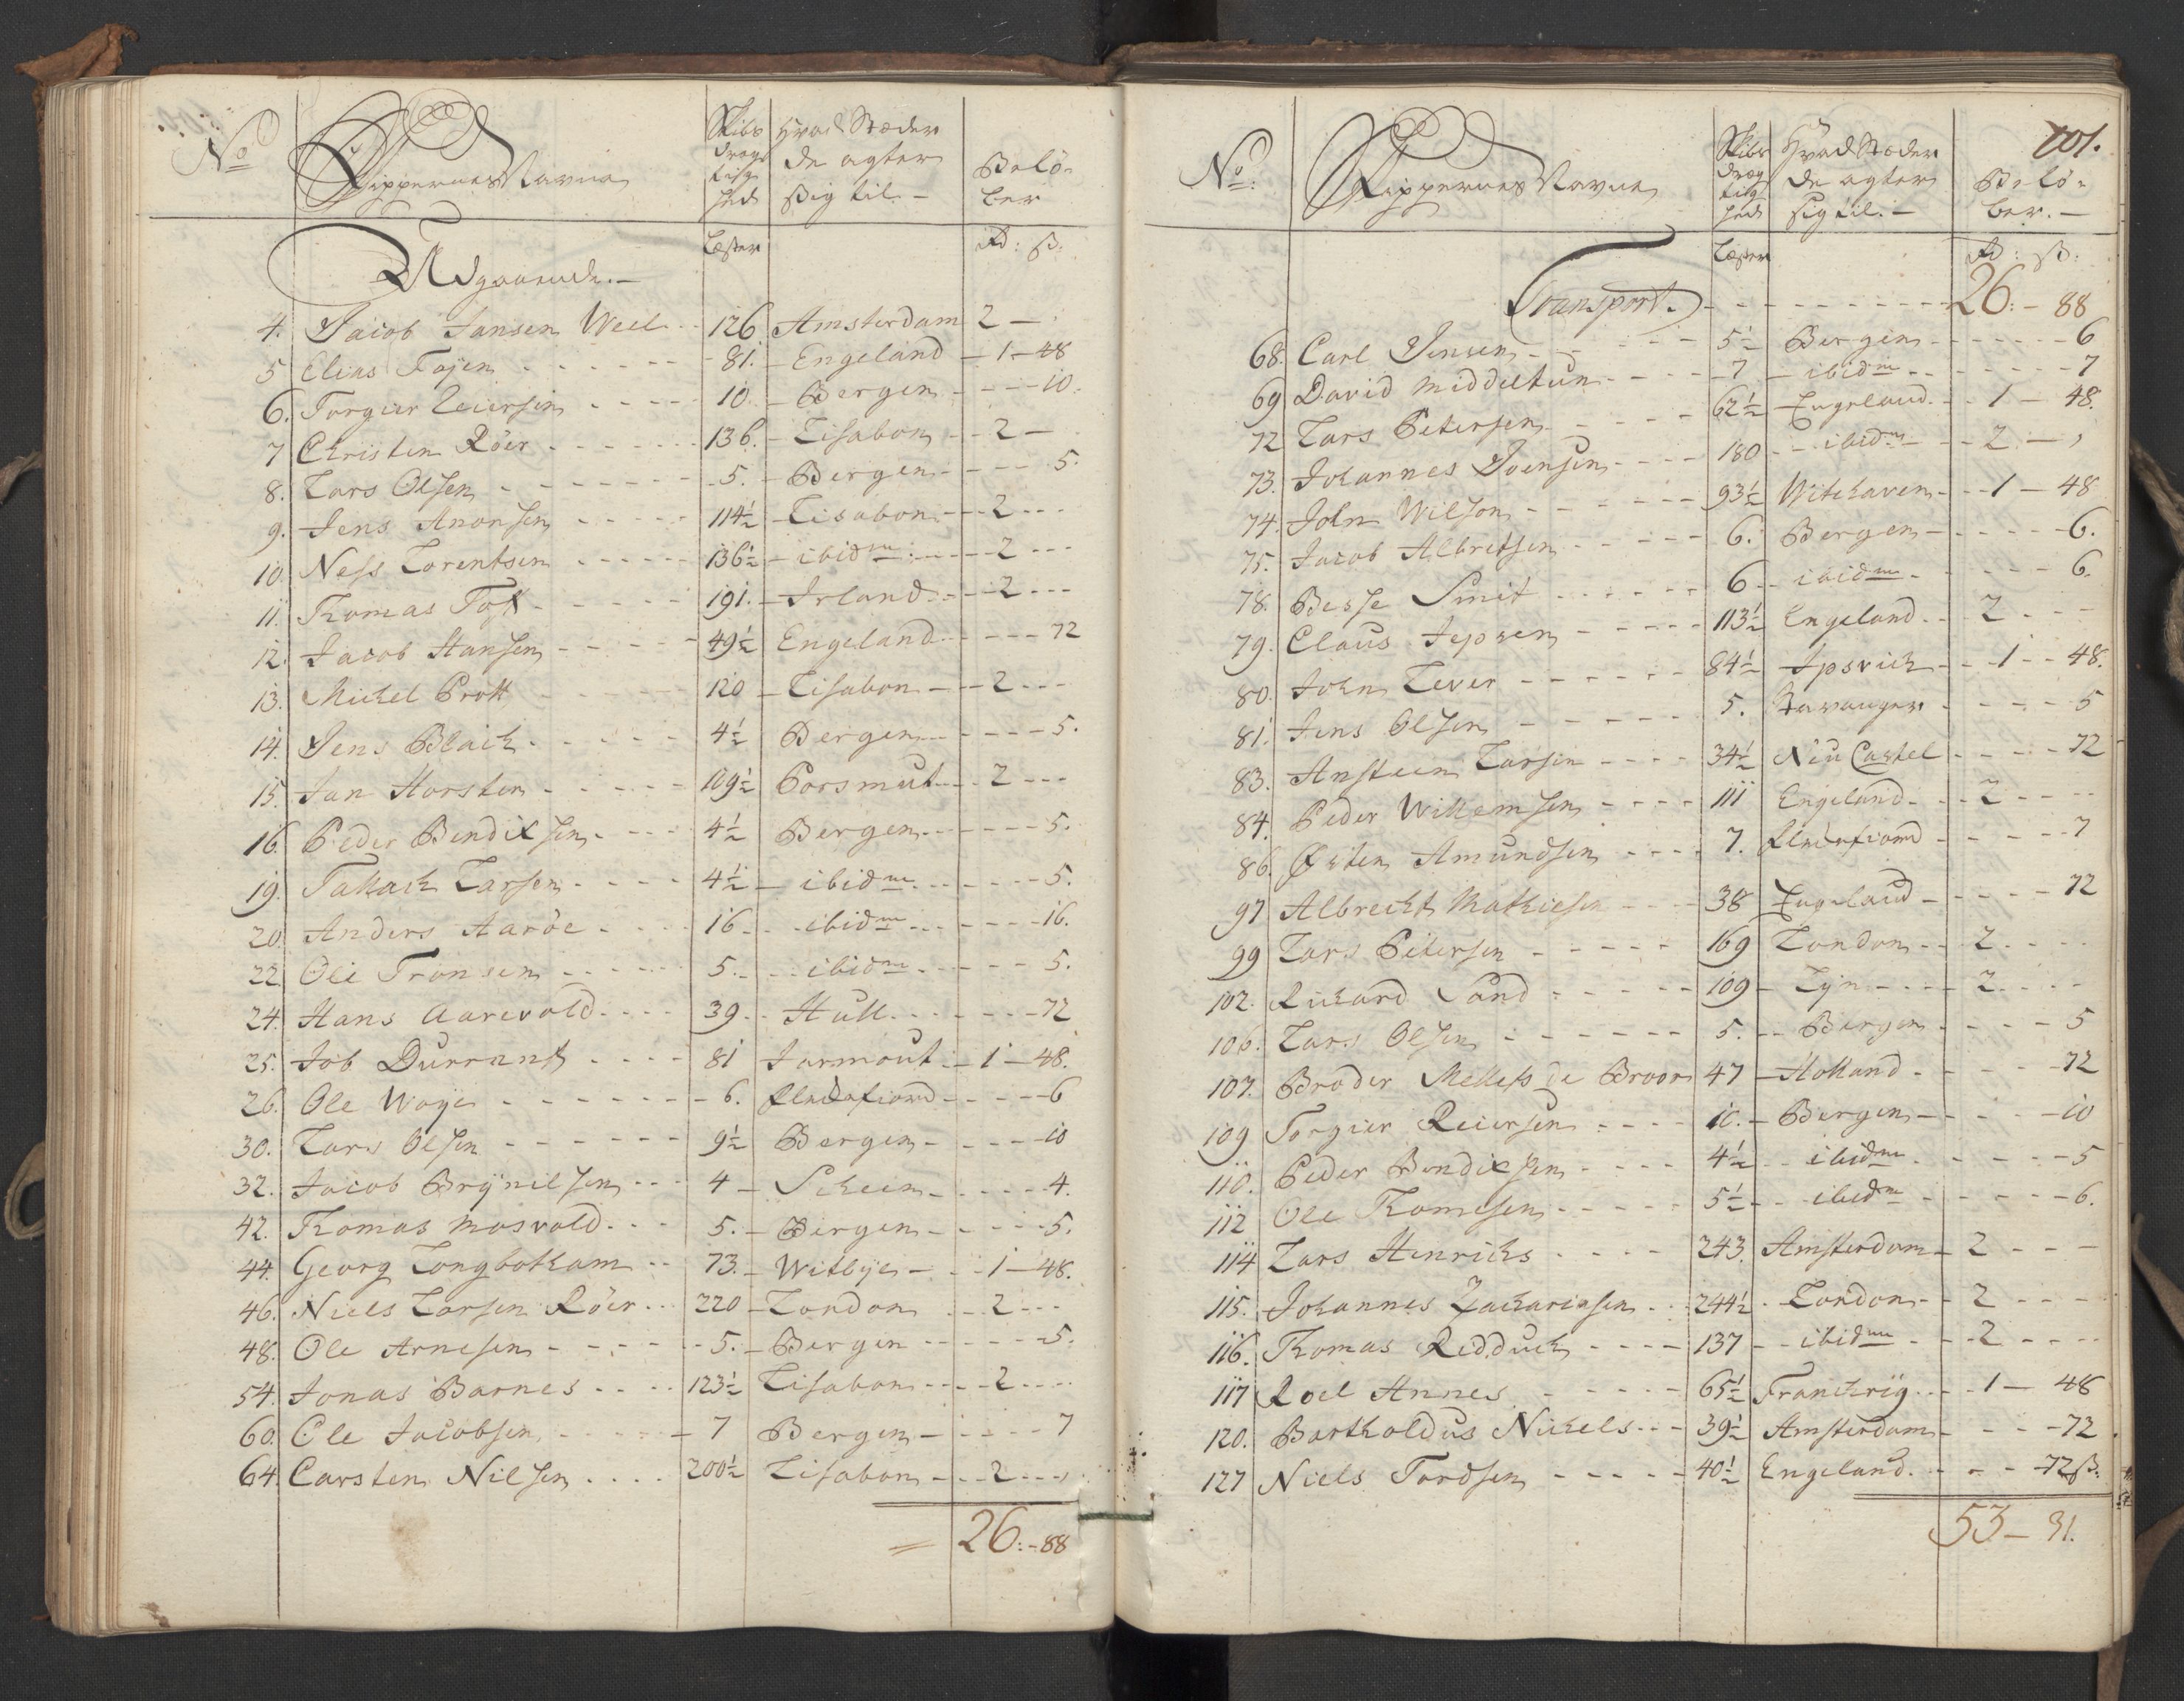 No
Skippernes Navne
Skibs
dræg
tig
hed
Hvad Stæder
de agter
sig til -
Belö-
ber
Læster
Rd: ß:
Udgaaende.-
4. Jacob Jansen Weel - 126 Amsterdam 2 -
5 Elias Föyen - 81. - Engeland - 1 - 48
6. Torgier Reiersen - 10. - Bergen - 10.
7 Christen Röer - 136. - Lisabon - 2 -
8. Lars Olsen - 5. - Bergen - 5.
9. Jens Anonsen - 114½ - Lisabon - 2 -
10 Ness Lorentsen - 136½ - ibidm - 2 -
11. Thomas Toft - 191. - Irland - 2 -
12. Jacob Hansen - 49½ Engeland - 72
13. Michel Prott - 120 - Lisabon - 2 -
14. Jens Blaich - 4½ Bergen - 5.
15. Jan Horsten - 109½ Porsmut - 2 -
16. Peder Bendixsen - 4½ Bergen - 5.
19. Tallach Larsen - 4½ - ibidm - 5.
20 Anders Aaröe - 16 - ibidm - 16.
22 Ole Tronsen - 5. - ibidm - 5.
24. Hans Aarevold - 39. - Hull - 72
25. Job Durrant - 81 Jarmout - 1 - 48.
26. Ole Woye - 6. Flechefiord - 6
30. Lars Olsen - 9½ Bergen - 10
32. Jacob Brÿnilsen - 4 - Scheen - 4.
42. Thomas Mosvold - 5. - Bergen - 5.
44. Georg Longbotham - 73. - Witbÿe - 1 - 48.
46. Niels Larsen Röer - 220 - London - 2 -
48. Ole Arnesen - 5. - Bergen - 5.
54. Jonas Barnes - 123½ Lisabon - 2 -
60. Ole Jacobsen - 7 Bergen - 7
64. Carsten Nilsen - 200½ Lisabon - 2 -
= 26:-88
101.
No:
Skippernes Navne
Skibs
dræg
tig
hed
Hvad Stæder
de agter
sig til. -
Belö-
ber. -
Læster
Rd: ß:
Transport. - 26: - 88
68. Carl Jensen - 5½ Bergen - 6
69 David Middeltun - 7 - ibidm - 7
72 Lars Petersen - 62½ Engeland - 1 - 48.
73. Johannes Svensen - 180 - ibidm - 2 -
74. John Wilson - 93½ Witehaven - 1 - 48
75. Jacob Albretsen - 6. Bergen - 6.
78. Besse Smit - 6 - ibidm - 6.
79. Claus Jepsen - 113½ Engeland - 2 -
80. John Lever - 84½ Ipsvich - 1 - 48.
81. Jens Olsen - 5. Stavanger - 5
83. Ansteen Larsen - 34½ Neu Castel - 72
84. Peder Willemsen - 111 Engeland - 2 -
86. Østen Amundsen - 7. Flechefiord - 7
97 Albrecht Mathiesen - 38 Engeland - 72
99 Lars Petersen - 169 London - 2 -
102. Richard Sand - 109 - Lÿn - 2 -
106. Lars Olsen - 5. - Bergen - 5
107. Broder Melless de Broor 47 - Holland - 72
109 Torgier Reiersen - 10. - Bergen - 10
110. Peder Bendixsen - 4½ - ibidm - 5
112 Ole Thomesen - 5½ - ibidm - 6.
114 Lars Henrichs - 243. Amsterdam - 2 -
115. Johannes Zachariasen - 244½ - London - 2 -
116. Thomas Redduch - 137 - ibidm - 2 -
117 Roel Annes - 65½ Franchrig - 1 - 48
120. Bartholdus Nichels - 39½ Amsterdam - 72
127 Niels Tordsen - 40½ Engeland - 72 ß.
53 - 31.